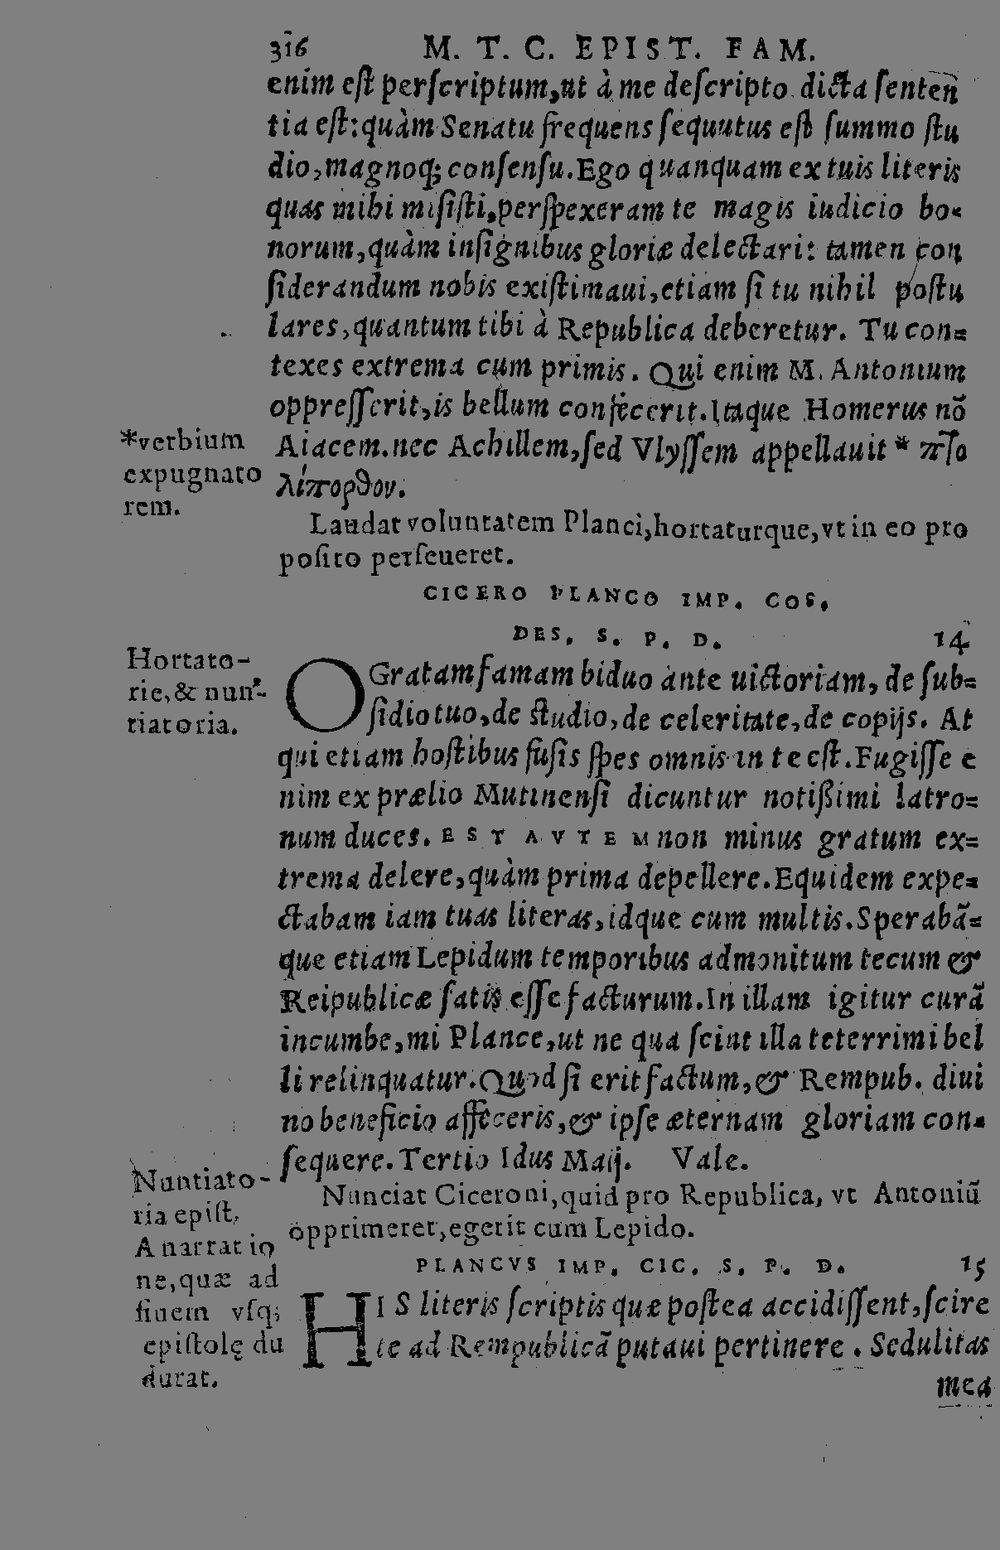 316 M. T. C. EPIST. FAM.
enim est perscriptum, ut à me descripto dicta senten
tia est: quàm Senatu frequens sequutus est summo stu
dio, magnoq; consensu. Ego quanquam ex tuis literis
quas mihi misisti, perspexeram te magis iudicio bo-
norum, quàm insignibus gloriæ delectari: tamen con
siderandum nobis existimaui, etiam si tu nihil postu
lares, quantum tibi à Republica deberetur. Tu con=
texes extrema cum primis. Qui enim M. Antonium
oppresserit, is bellum confecerit. Itaque Homerus nō
Aiacem. nec Achillem, sed Vlyssem appellauit * πτο
λίπορθον.
*verbium
expugnato
rem.
Laudat voluntatem Planci, hortaturque, vt in eo pro
posito perseueret.
CICERO PLANCO IMP. COS.
DES. S. P. D. 14
Hortato-
rie, & nun-
tiatoria.
O Gratam famam biduo ante uictoriam, de sub=
sidio tuo, de studio, de celeritate, de copijs. At
qui etiam hostibus fusis spes omnis in te est. Fugisse e
nim ex prælio Mutinensi dicuntur notißimi latro=
num duces. EST AVTEM non minus gratum ex=
trema delere, quàm prima depellere. Equidem expe=
ctabam iam tuas literas, idque cum multis. Sperabā=
que etiam Lepidum temporibus admonitum tecum &
Reipublicæ satis esse facturum. In illam igitur curā
incumbe, mi Plance, ut ne qua scint illa teterrimi bel
li relinquatur. Quod si erit factum, & Rempub. diui
no beneficio affeceris, & ipse æternam gloriam con-
sequere. Tertio Idus Maij. Vale.
Nuntiato-
ria epist.
A narratio
ne, quæ ad
finem vsq;
epistolę du
durat.
Nunciat Ciceroni, quid pro Republica, vt Antoniū
opprimeret, egerit cum Lepido.
PLANCVS IMP. CIC. S. P. D. 15
HIS literis scriptis quæ postea accidissent, scire
te ad Rempublicā putaui pertinere. Sedulitas
mea